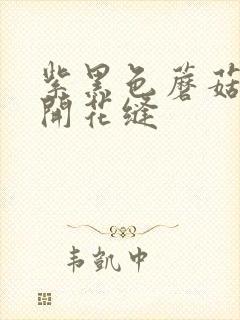 紫黑色蘑菇
開花缝
韦凱中